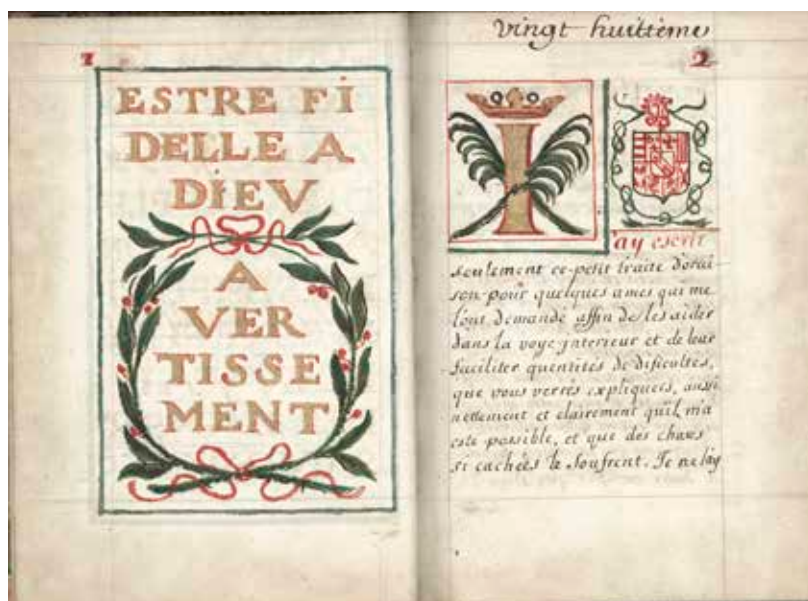 1
ESTRE FI
DELLE A
DIEV
A
VER
TISSE
MENT
vingt huittème
2
I
'ay escrit
seulement ce petit traite d'orai
son pour quelques ames qui me
l'ont demandé affin de les aider
dans la voye interieur et de leur
faciliter quentités de dificultes,
que vous verrés expliquees, aussi
nettement et clairement quil m'a
este possible, et que des choses
si cachées le soufrent. Je ne l'ay